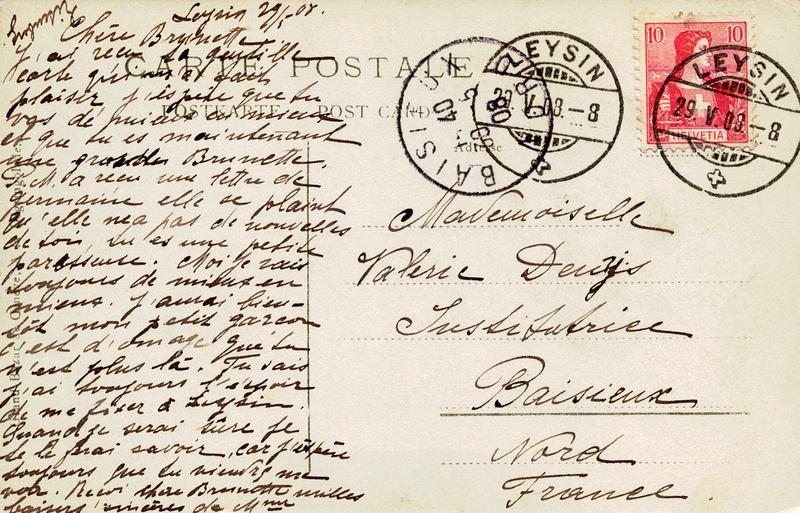 Leysin 29/5.08.
Chère Brunette
J'ai reçu ta gentille
carte qui m'a fait
plaisir j'espère que tu
vas de mieux en mieux
et que tu es maintenant
une grande Brunette.
P. M. a reçu une lettre de
germaine elle se plaint
qu'elle n'a pas de nouvelles
de toi, tu es une petite
paresseuse. Moi je vais
toujours de mieux en
mieux. J'aurai bien-
tôt mon petit garçon
c'est domage que tu
n'est plus là. Tu sais
j'ai toujours l'espoir
de me fixer à Leysin.
Quand je serai sûre je
te le ferai savoir, car j'espère
toujours que tu viendra me
voir. Reçoi chère Brunette milles
baisers sincères de Mme
CARTE POSTALE
POSTKARTE POST CARD
Adresse
BAISIEUX
LEYSIN
29.V.08.-8
10 10
HELVETIA
LEYSIN
29.V.08.-8
Mademoiselle
Valerie Denys
Institutrice
Baisieux
Nord
France.